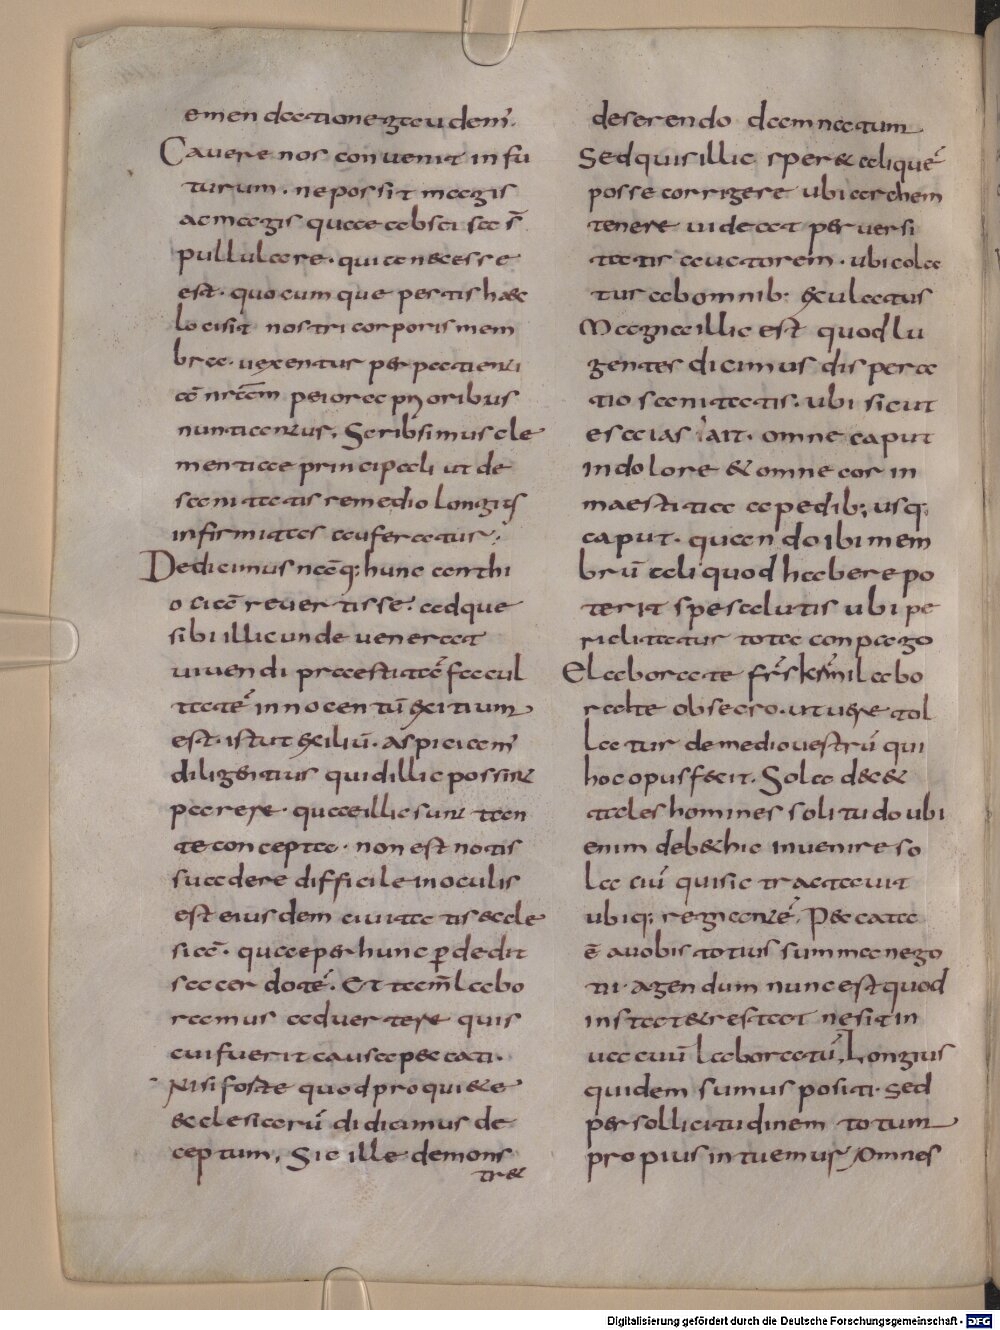 emendatione gaudem̄.
Cauere nos conuenit in fu
turum. ne possit magis
ac magis quae ab scissa s̄
pullulare. quia necesse
est. quocumque pestis haec
loci sit nostri corporis mem
bra. uexentur per patienti
ā nr̄am peiora prioribus
nuntiantur. Scribsimus cle
mentiae principali ut de
sanitatis remedio longius
infirmitas auferatur;
Dedicimus nāq; hunc anthi
ociā reuertisse. adque
sibi illic unde uenerat
uiuendi praestitā facul
tatē innocentū exitium
est. istut exiliū. aspiciam̄
diligentius quid illic possint
parere. quae illic sunt tan
te concepta. non est notis
succedere difficile in oculis
est eiusdem ciuitatis aecle
siā. quae per hunc p̄dedit
sacerdotē. Et tam̄ labo
ramus aduertere quis
cui fuerit causa peccati.
Nisi forte quod pro quiete
aecclesiarū didicimus de
ceptum, Sic ille demons
trae
deserendo damnatum
Sed quis illic speret aliquē
posse corrigere ubi archem
tenere uideat peruersi
tatis auctorem. ubi cola
tur ab omnib: exculatus
Magna illic est quod lu
gentes dicimus dispera
tio sanitatis. ubi sicut
esaias ait. omne caput
in dolore & omne cor in
maestitia a pedib; usq;
caput. quando ibi mem
brū aliquod habere po
terit spes salutis ubi pe
riclitatur tota conpago
Elaborate fr̄s km̄i labo
rate obsecro. ut uere tol
latur de medio uestrū qui
hoc opus fecit. Sola decet
tales homines solitudo ubi
enim debet hic inuenire so
la cui quisic tractauit
ubiq; regnantē. Peccata
ē a uobis totius summa nego
tii. agendum nunc est quod
instat & restat ne sit in
uacuū laboratū, Longius
quidem sumus positi. sed
per sollicitudinem totum
propius intuemur, Omnes
Digitalisierung gefördert durch die Deutsche Forschungsgemeinschaft - DFG